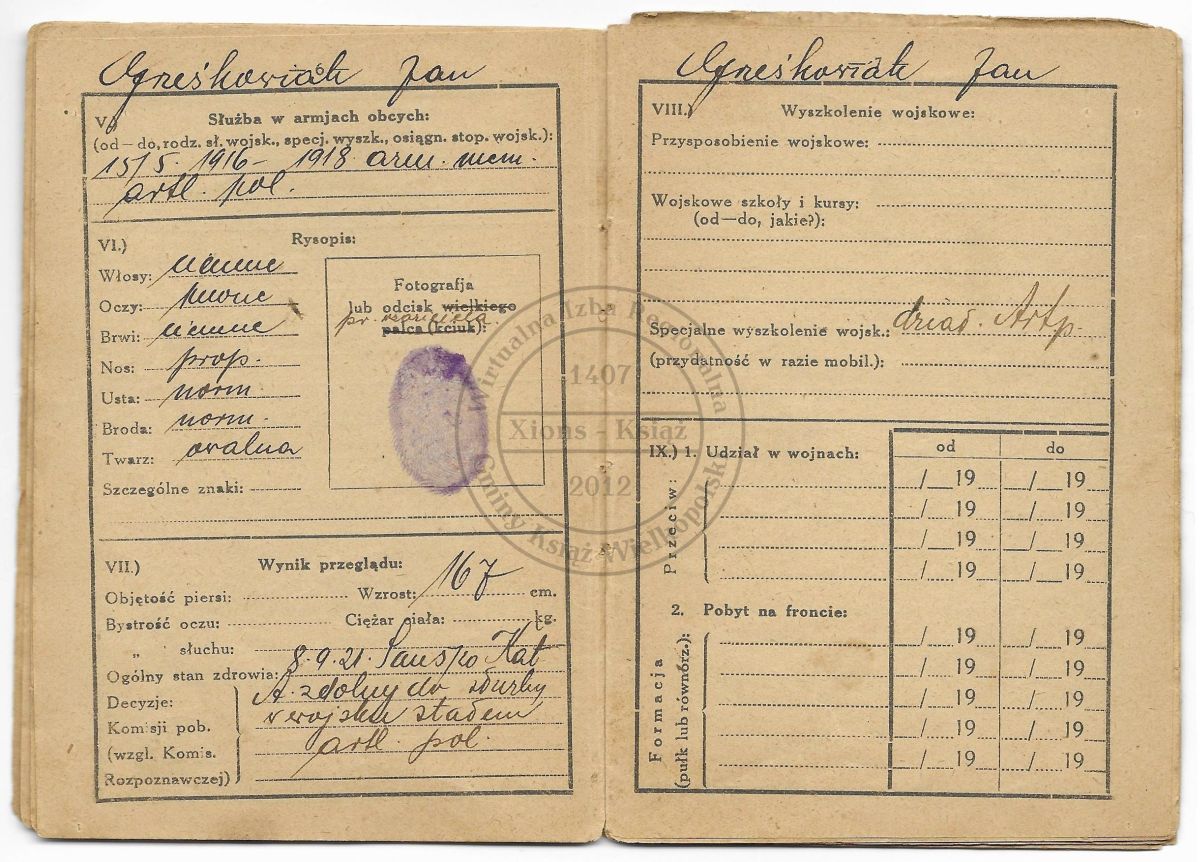 Grześkowiak Jan
- 6 -
V.) Służba w armjach obcych:
(od — do, rodz. sł. wojsk., specj. wyszk., osiągn. stop. wojsk.):
15/5. 1916 - 1918 arm. niem.
artl. pol.
VI.) Rysopis:
Włosy: ciemne
Oczy: piwne
Brwi: ciemne
Nos: prop.
Usta: norm
Broda: norm.
Twarz: owalna
Szczególne znaki:
Fotografja
lub odcisk wielkiego
pr. wskaziciela
palca (kciuk):
VII.) Wynik przeglądu:
Objętość piersi: Wzrost: 167 cm.
Bystrość oczu: Ciężar ciała: kg.
„ słuchu:
Ogólny stan zdrowia: 8.9.21. Kat
Decyzje: A. zdolny do służby
Komisji pob. w wojsku stałem
(wzgl. Komis. artl. pol.
Rozpoznawczej)
Grześkowiak Jan
- 7 -
VIII.) Wyszkolenie wojskowe:
Przysposobienie wojskowe:
Wojskowe szkoły i kursy:
(od—do, jakie?):
Specjalne wyszkolenie wojsk.: dział. Art p.
(przydatność w razie mobil.):
IX.) 1. Udział w wojnach: od do
Przeciw:
/ 19 / 19
/ 19 / 19
/ 19 / 19
/ 19 / 19
2. Pobyt na froncie:
Formacja
(pułk lub równórz.):
/ 19 / 19
/ 19 / 19
/ 19 / 19
/ 19 / 19
/ 19 / 19
Wirtualna Izba Regionalna
1407
Xions - Książ
2012
Gminy Książ Wielkopolski